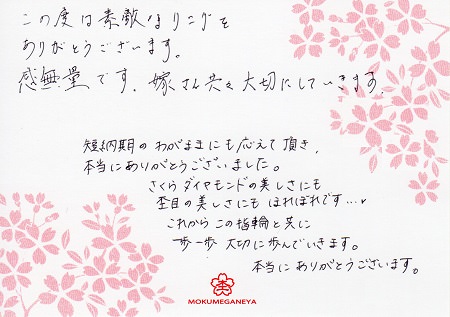 この度は素敵なリングを
ありがとうございます。
感無量です。嫁さん共々大切にしていきます。
短納期のわがままにも応えて頂き、
本当にありがとうございました。
さくらダイヤモンドの美しさにも
杢目の美しさにもほれぼれです…♥
これからこの指輪と共に
一歩一歩大切に歩んでいきます。
本当にありがとうございます。
杢
MOKUMEGANEYA